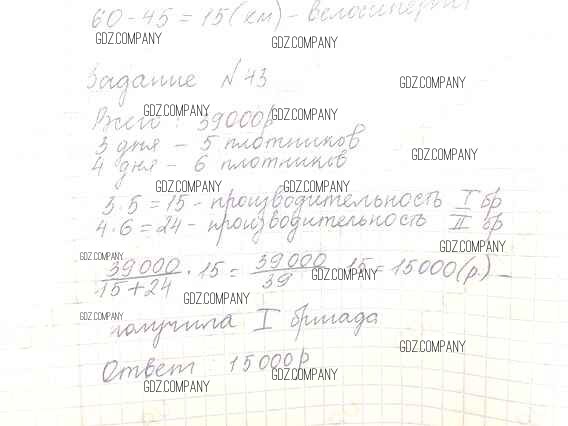 60 - 45 = 15 (км) - велосипедист
GDZ.COMPANY GDZ.COMPANY
Задание №43
GDZ.COMPANY
GDZ.COMPANY GDZ.COMPANY
Всего : 39000р
3 дня - 5 плотников
4 дня - 6 плотников
GDZ.COMPANY
GDZ.COMPANY GDZ.COMPANY
3·5 = 15 - производительность I бр
4·6 = 24 - производительность II бр
GDZ.COMPANY
GDZ.COMPANY
39000 / 15+24 · 15 = 39000 / 39 · 15 = 15000 (р.) -
GDZ.COMPANY
GDZ.COMPANY
GDZ.COMPANY
получила I бригада
GDZ.COMPANY
Ответ : 15000р
GDZ.COMPANY GDZ.COMPANY